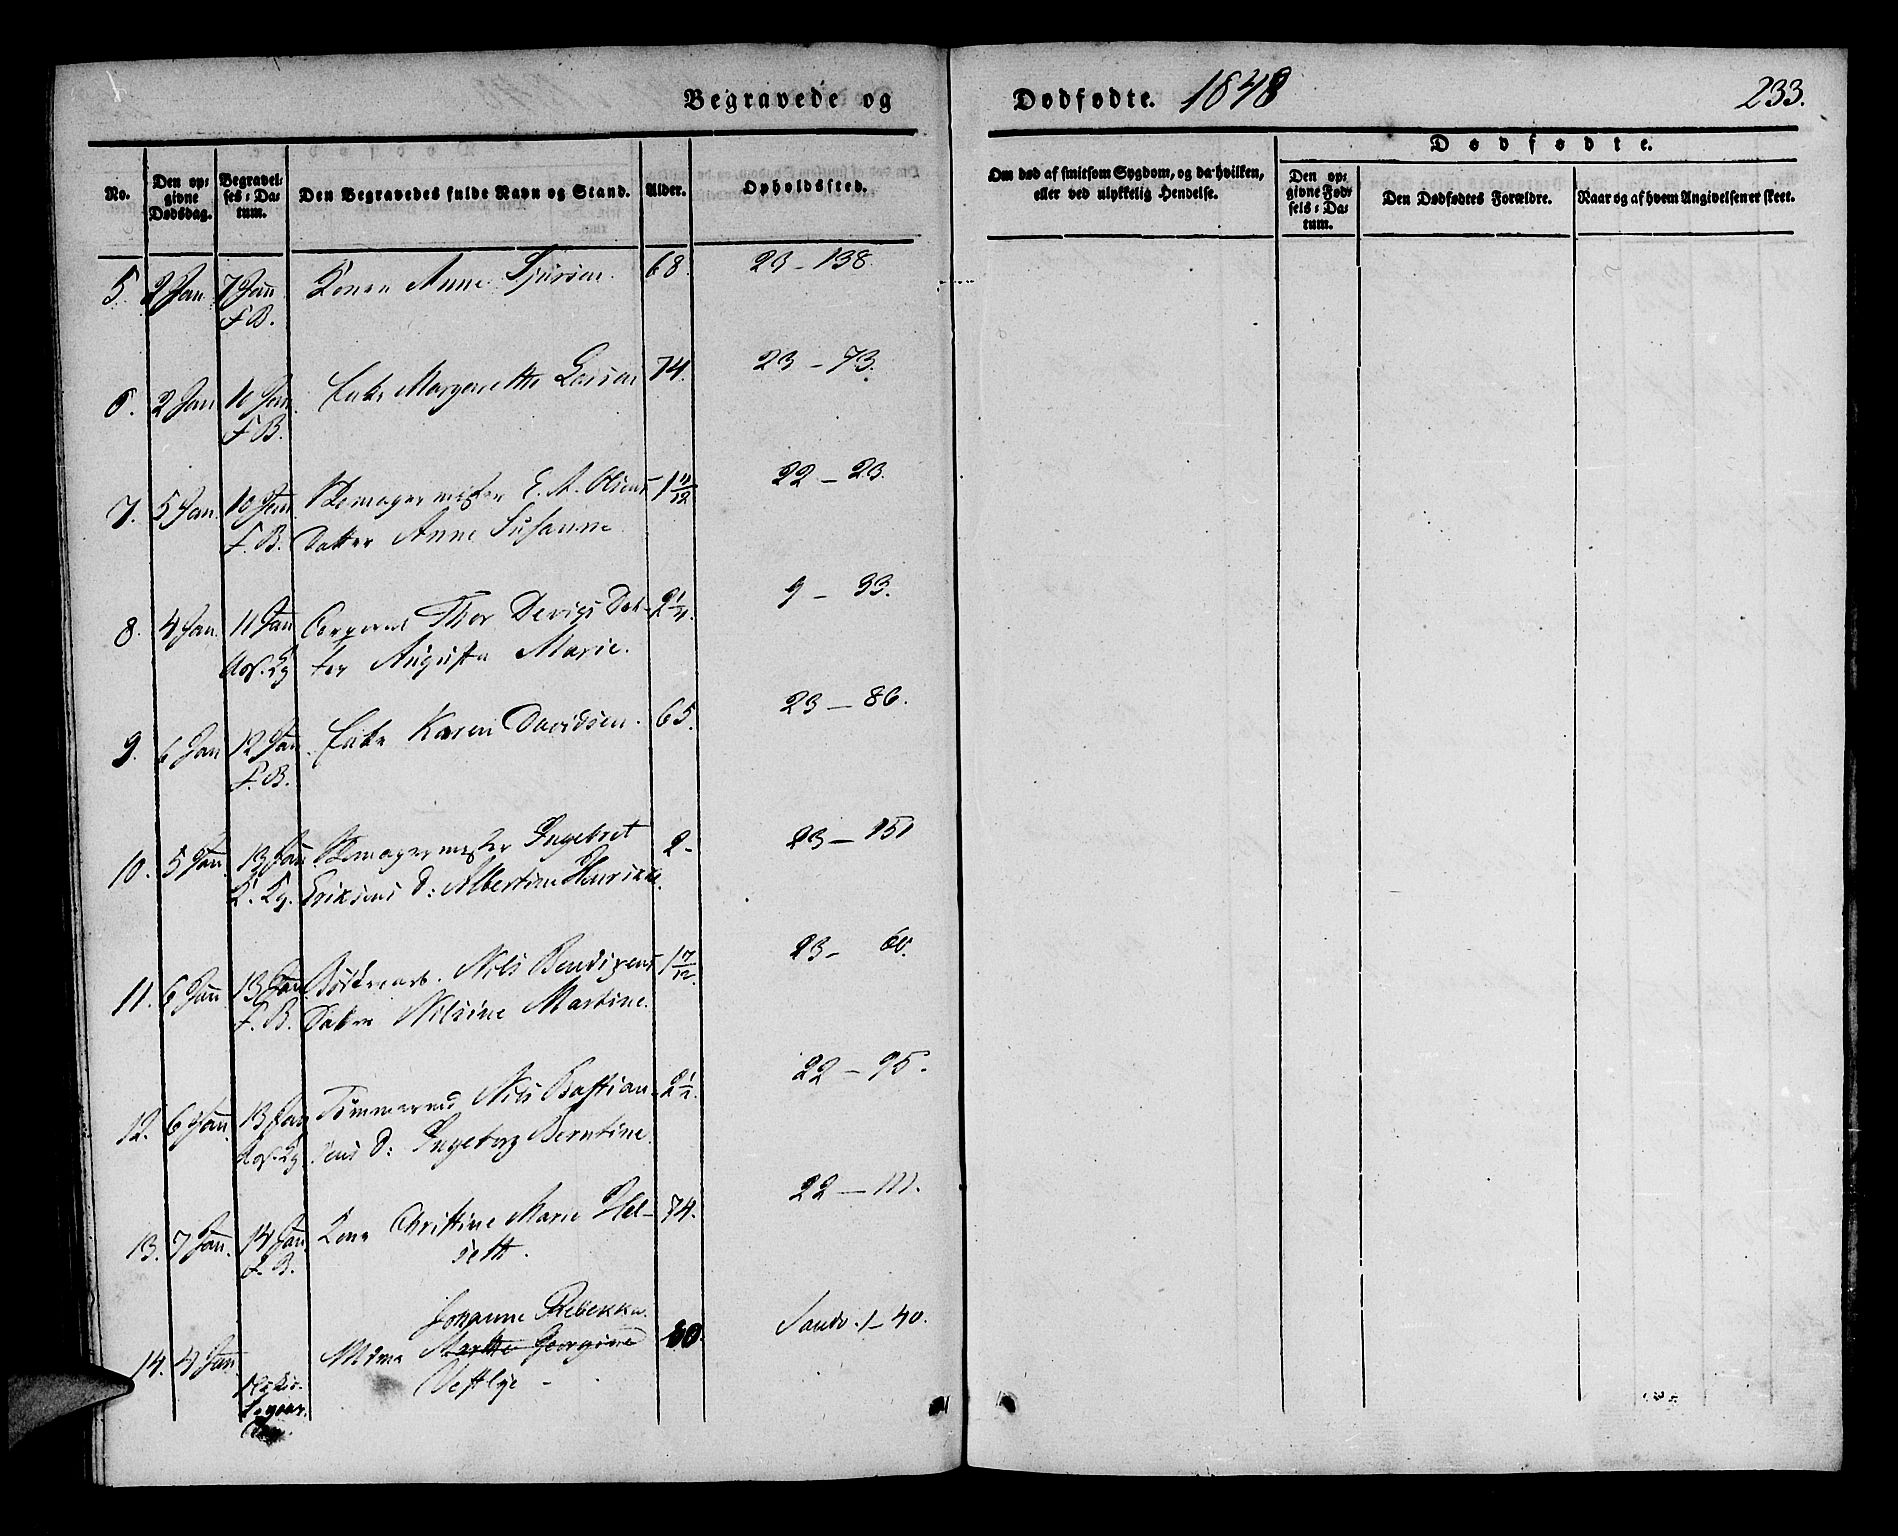 Begravede og
Dødfødte. 1848
233.
No.
Den op-
givne
Dødsdag.
Begravel-
ses-Da-
tum.
Den Begravedes fulde Navn og Stand.
Alder.
Opholdssted.
Om død af smitsom Sygdom, og da hvilken,
eller ved ulykkelig Hendelse.
Dødfødte.
Den op-
givne Fød-
sels-Da-
tum.
Den Dødfødtes Forældre.
Naar og af hvem Angivelsen er skeet.
5. 2 Jan 7 Jan Konen Anne 68. 23 - 138.
F. B.
6. 2 Jan 10 Jan Enke Margarethe 74. 23 - 73.
F. B.
7. 5 Jan. 10 Jan Skomagermester E. A. Olsens 1 11/12 22 - 23.
F. B. Datter Anne Susanne
8. 4 Jan. 11 Jan Thor Dat- 2 1/4. 9 - 33.
ter Augusta Marie.
9. 6 Jan 12 Jan. Enke Karen Davidsen. 65. 23 - 86.
F. B.
10. 5 Jan. 13 Jan Skomagermester Ingebret 2 - 23 - 151
K. Kg. Eriksens D: Albertine Henrikke.
11. 6 Jan 13 Jan Nils Bendixens 1 7/12. 23 - 60.
F. B. Datter Nilsine Martine.
12. 6 Jan. 13 Jan Tømmermd Nils Bastian- 2 1/2. 22 - 95.
sens D: Ingeborg Berntine.
13. 7 Jan. 14 Jan. Kone Christine Marie Hel- 74. 22 - 111.
F. B. seth.
Johanne Rebekka
14. 4 Jan. Georgine 60. Sandv. 1 - 40.
Vestlye -